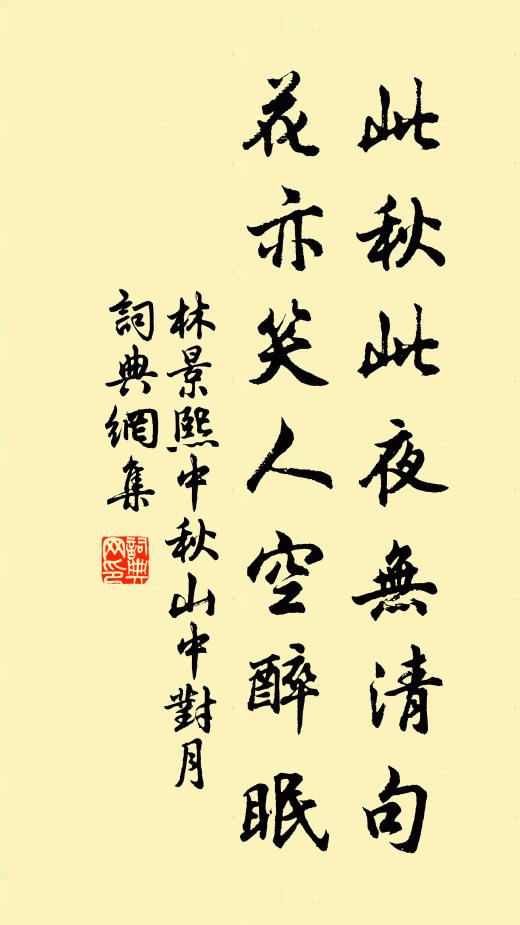 此秋此夜無清句
花亦笑人空醉眠
林景熙中秋山中對月
詞典網集
詞典网印